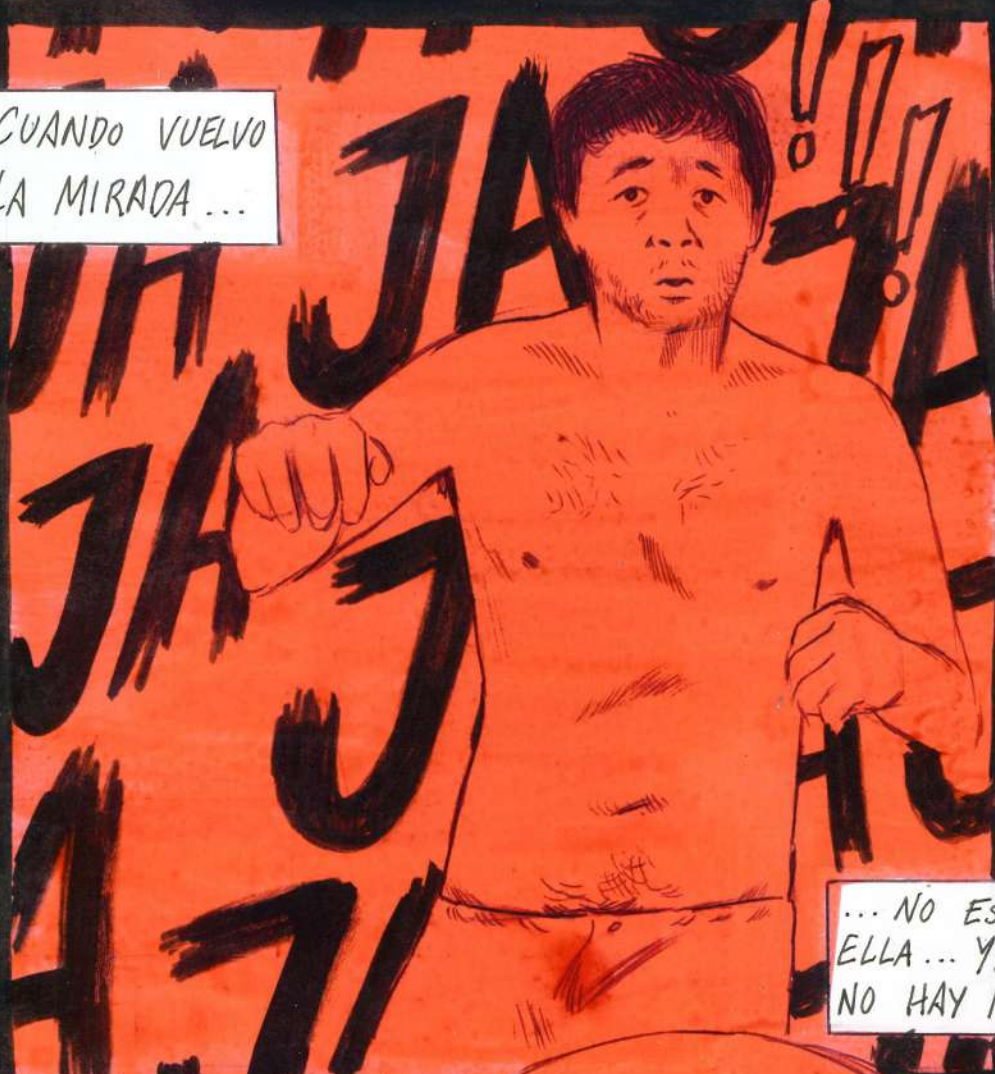 CUANDO VUELVO
LA MIRADA...
!!!
JA JA JA
JA J
JA
... NO ES
ELLA... Y
NO HAY